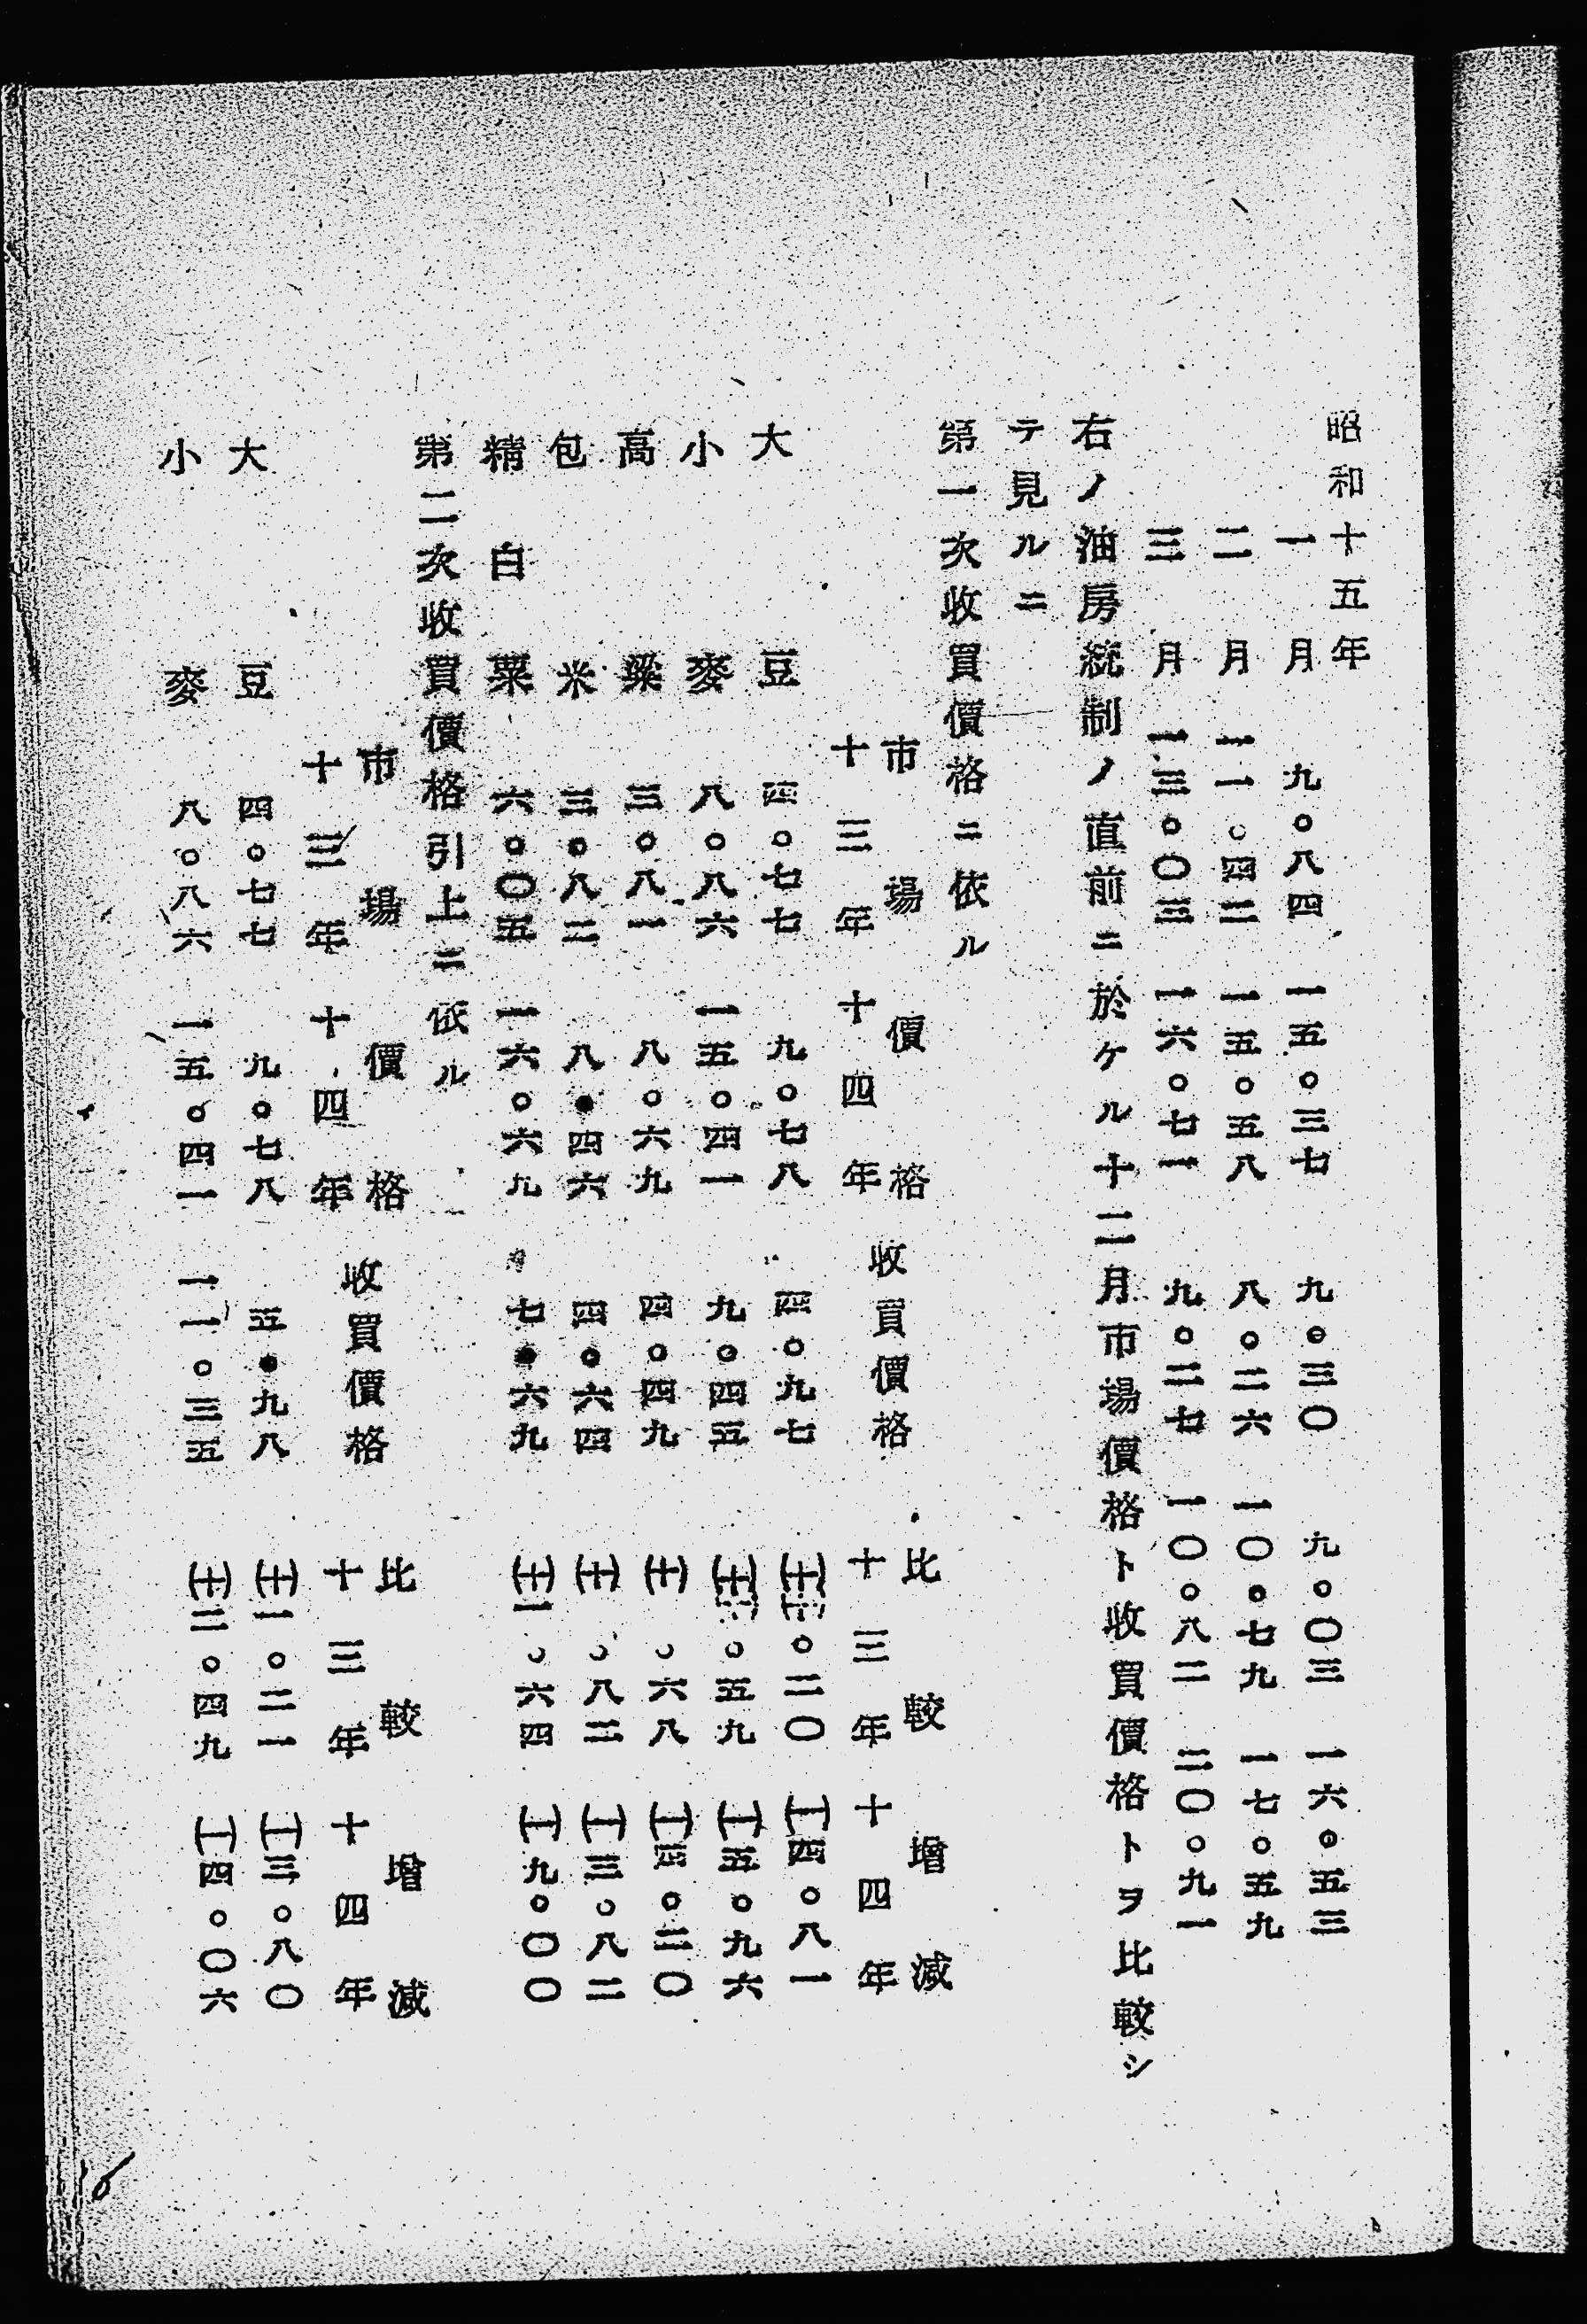 昭和十五年
一月 九。八四 一五。三七 九。三〇 九。〇三 一六。五三
二月 一一。四二 一五。五八 八。二六 一〇。七九 一七。五九
三月 一三。〇三 一六。七一 九。二七 一〇。八二 二〇。九一
右ノ油房統制ノ直前ニ於ケル十二月市場價格ト收買價格トヲ比較シ
テ見ルニ
第一次收買價格ニ依ル
市場價格 收買價格 比較增減
十三年 十四年 十三年 十四年
大豆 四。七七 九。七八 四。九七 (十) 。二〇 (一)四。八一
小麥 八。八六 一五。四一 九。四五 (十) 。五九 (一)五。九六
高粱 三。八一 八。六九 四。四九 (十) 。六八 (一)四。二〇
包米 三。八二 八。四六 四。六四 (十) 。八二 (一)三。八二
精白粟 六。〇五 一六。六九 七。六九 (十)一。六四 (一)九。〇〇
第二次收買價格引上ニ依ル
市場價格 收買價格 比較增減
十三年 十四年 十三年 十四年
大豆 四。七七 九。七八 五。九八 (十)一。二一 (一)三。八〇
小麥 八。八六 一五。四一 一一。三五 (十)二。四九 (一)四。〇六